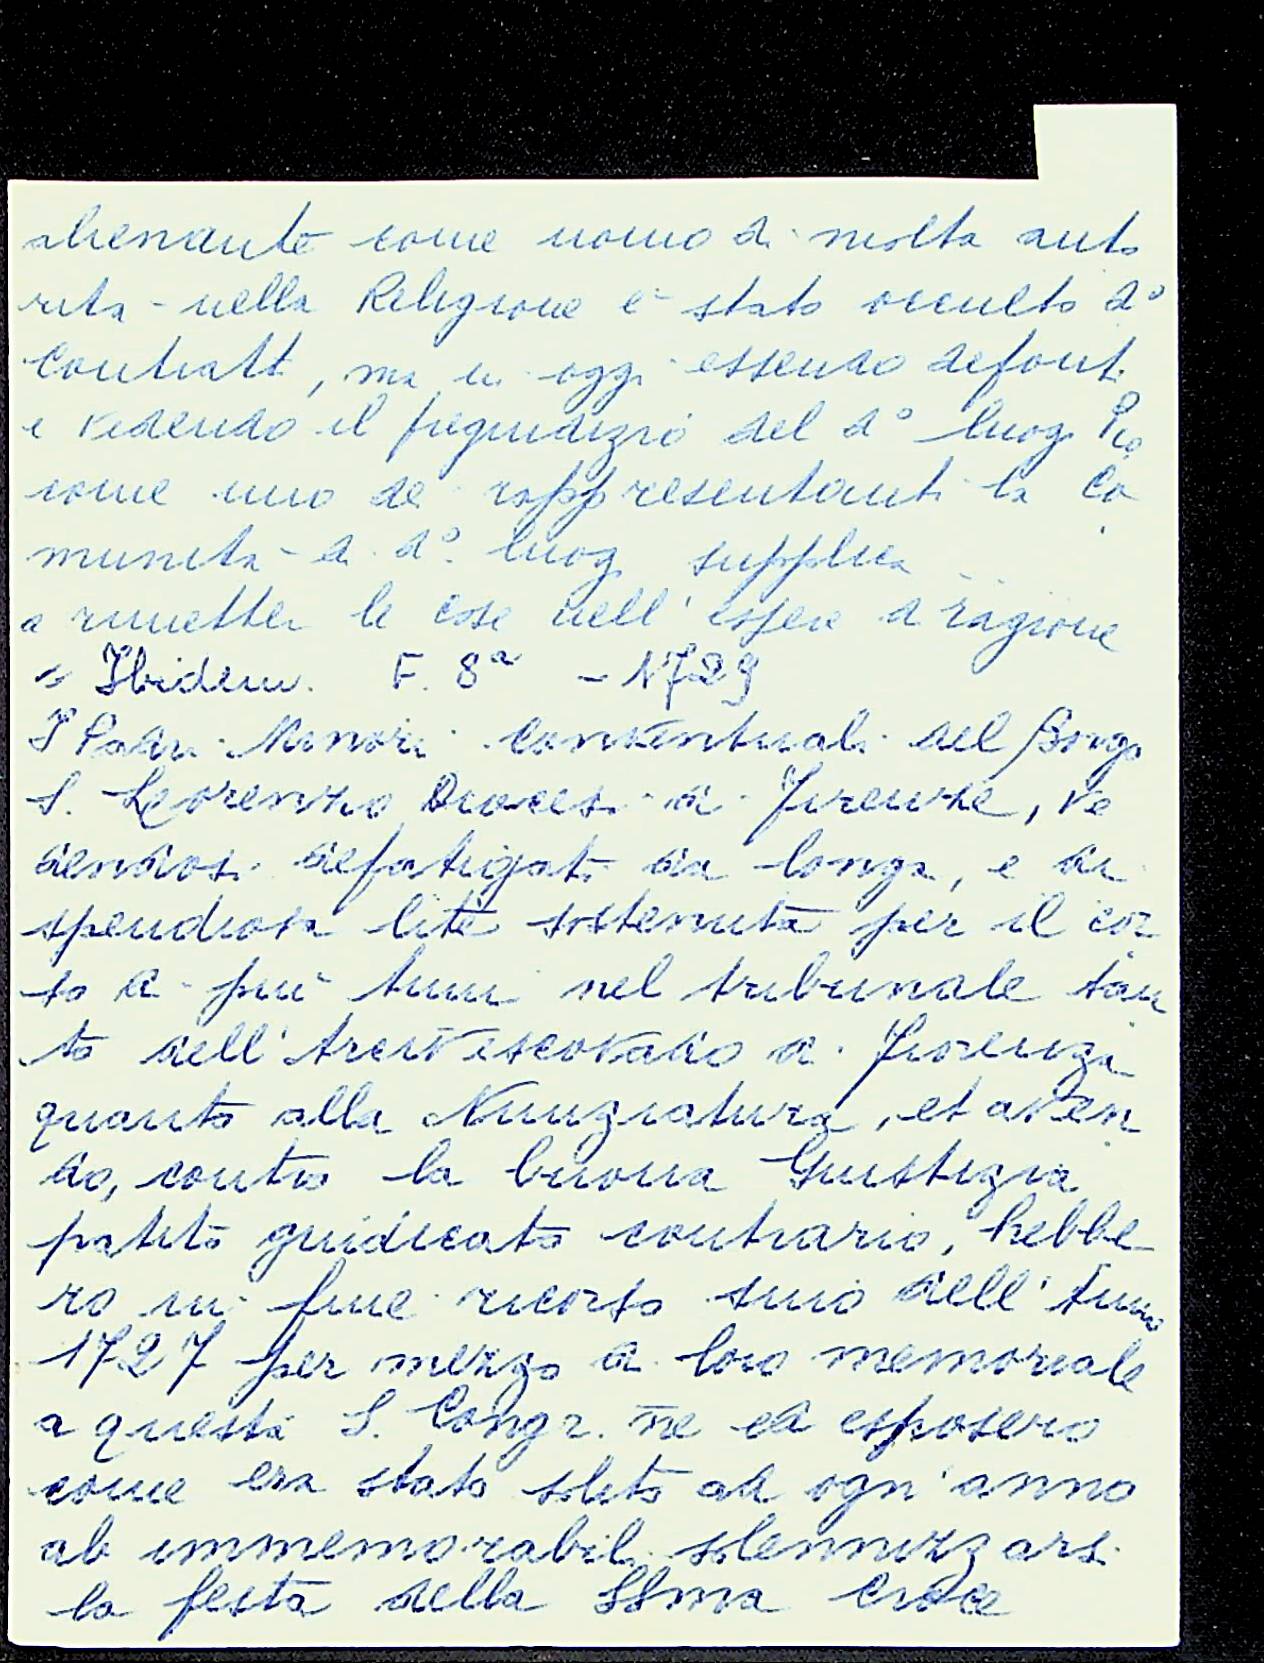 alienante come uomo di molta auto
rita nella Religione è stato occulto do
contratt, ma in oggi essendo defont
e vedendo il pregiudizio del do luog Pio
come uno de rappresentanti la Co
munità di do luog supplica ...
a rimetter le cose nell' essere di ragione
" Ibidem. F. 8a - 1729
I Padri Minori conventuali del Borgo
S. Lorenzo Diocesi di Firenze, ve
dendosi defatigati da longa, e di
spendiosa lite sostenuta per il cor
so di più anni nel tribunale tan
to dell' Arcivescovado di Fiorenza
quanto alla Nunziatura, et aven
do, contro la buona Giustizia
patito giudicato contrario, hebbe
ro in fine ricorso sino dell' Anno
1727 per mezzo di loro memoriale
a questa S. Congr. ne ed esposero
come era stato solito ad ogn' anno
ab immemorabili solennizzarsi
la festa della SSma Croce